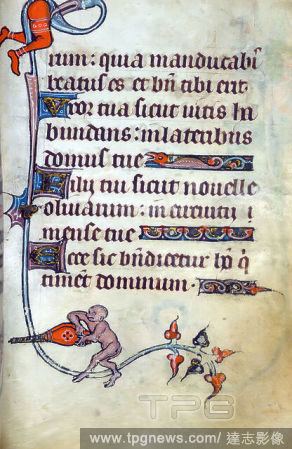 rum: quia manducabi
beatus es et bn tibi erit.
Uxor tua sicut uitis ha
bundans: in lateribus
domus tue
Filii tui sicut nouelle
oliuarum: in circuitu
mense tue
Ecce sic bndicetur ho q
timet dominum.
TPG
www.tpgnews.com / 達志影像